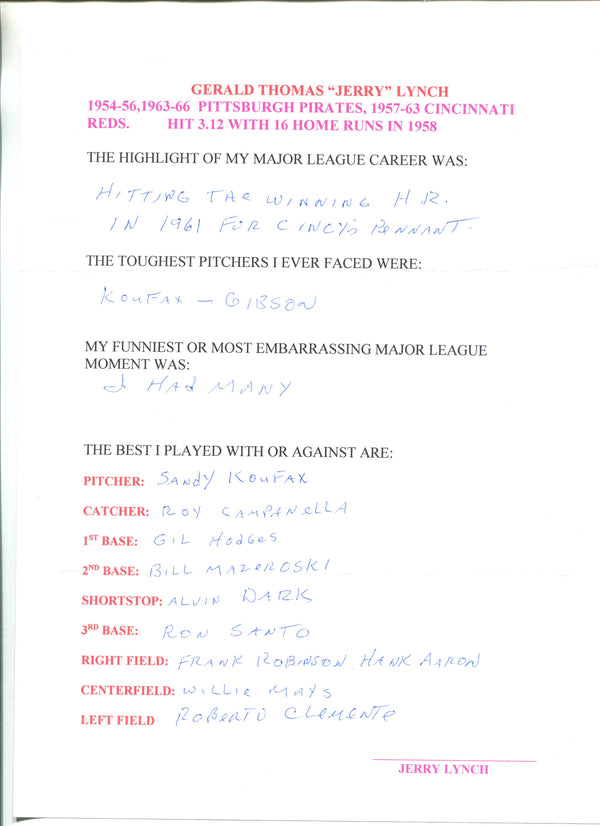 GERALD THOMAS “JERRY” LYNCH
1954-56,1963-66 PITTSBURGH PIRATES, 1957-63 CINCINNATI
REDS. HIT 3.12 WITH 16 HOME RUNS IN 1958
THE HIGHLIGHT OF MY MAJOR LEAGUE CAREER WAS:
HITTING THE WINNING H.R.
IN 1961 FOR CINCY'S PENNANT.
THE TOUGHEST PITCHERS I EVER FACED WERE:
KOUFAX – GIBSON
MY FUNNIEST OR MOST EMBARRASSING MAJOR LEAGUE
MOMENT WAS:
I HAd MANY
THE BEST I PLAYED WITH OR AGAINST ARE:
PITCHER: SANdY KOUFAX
CATCHER: ROY CAMPANELLA
1ST BASE: GIL HodGES
2ND BASE: BILL MAZEROSKI
SHORTSTOP: ALVIN DARK
3RD BASE: RON SANTO
RIGHT FIELD: FRANK ROBINSON HANK AARON
CENTERFIELD: WILLIE MAYS
LEFT FIELD ROBERTO CLEMENTE
JERRY LYNCH